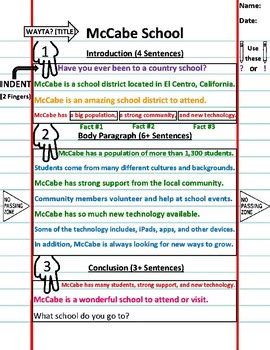 WAYTA? (TITLE)
McCabe School
Name:
Date:
1
Introduction (4 Sentences)
Use these
? or !
INDENT
(2 Fingers)
Have you ever been to a country school?
McCabe is a school district located in El Centro, California.
McCabe is an amazing school district to attend.
McCabe has a big population, a strong community, and new technology.
Fact #1 Fact #2 Fact #3
2
Body Paragraph (6+ Sentences)
McCabe has a population of more than 1,300 students.
Students come from many different cultures and backgrounds.
McCabe has strong support from the local community.
NO PASSING ZONE
Community members volunteer and help at school events.
NO PASSING ZONE
McCabe has so much new technology available.
Some of the technology includes, iPads, apps, and other devices.
In addition, McCabe is always looking for new ways to grow.
3
Conclusion (3+ Sentences)
McCabe has many students, strong support, and new technology.
McCabe is a wonderful school to attend or visit.
What school do you go to?